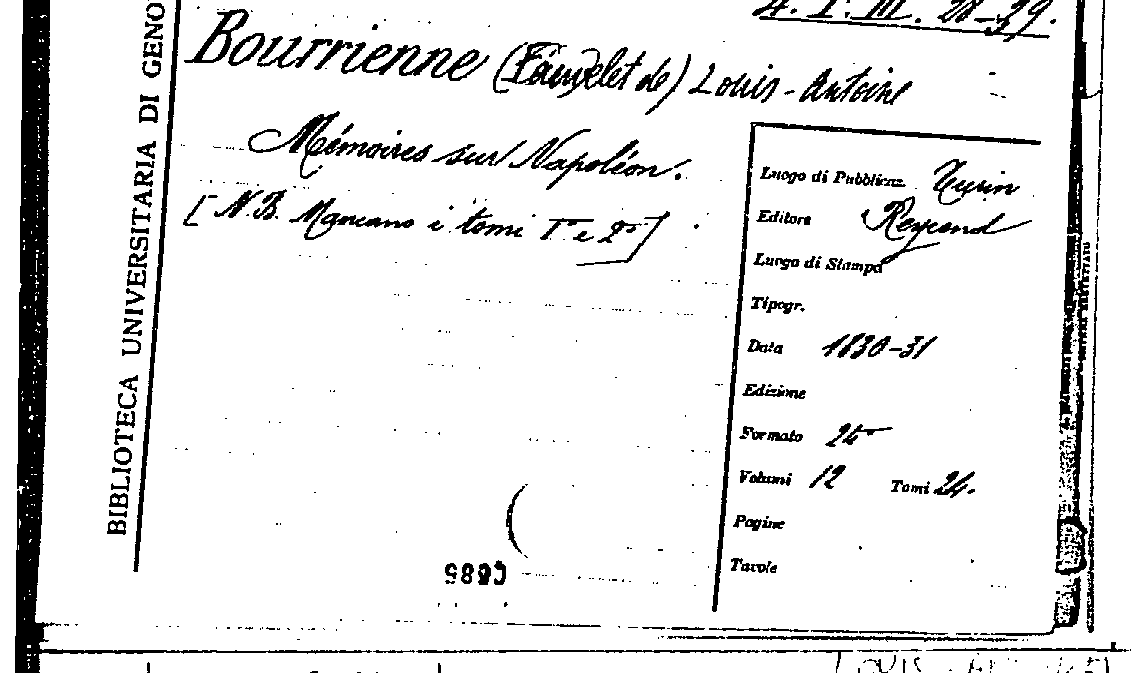 4. I. III. 28-39.
Bourrienne (Fauvelet de) Louis-Antoine
Mémoires sur Napoléon.
[N.B. Mancano i tomi 1° e 2°]
BIBLIOTECA UNIVERSITARIA DI GENO
Luogo di Pubblicaz. Turin
Editore Reycend
Luogo di Stampa
Tipogr.
Data 1830-31
Edizione
Formato 24°
Volumi 12 Tomi 24.
Pagine
Tavole